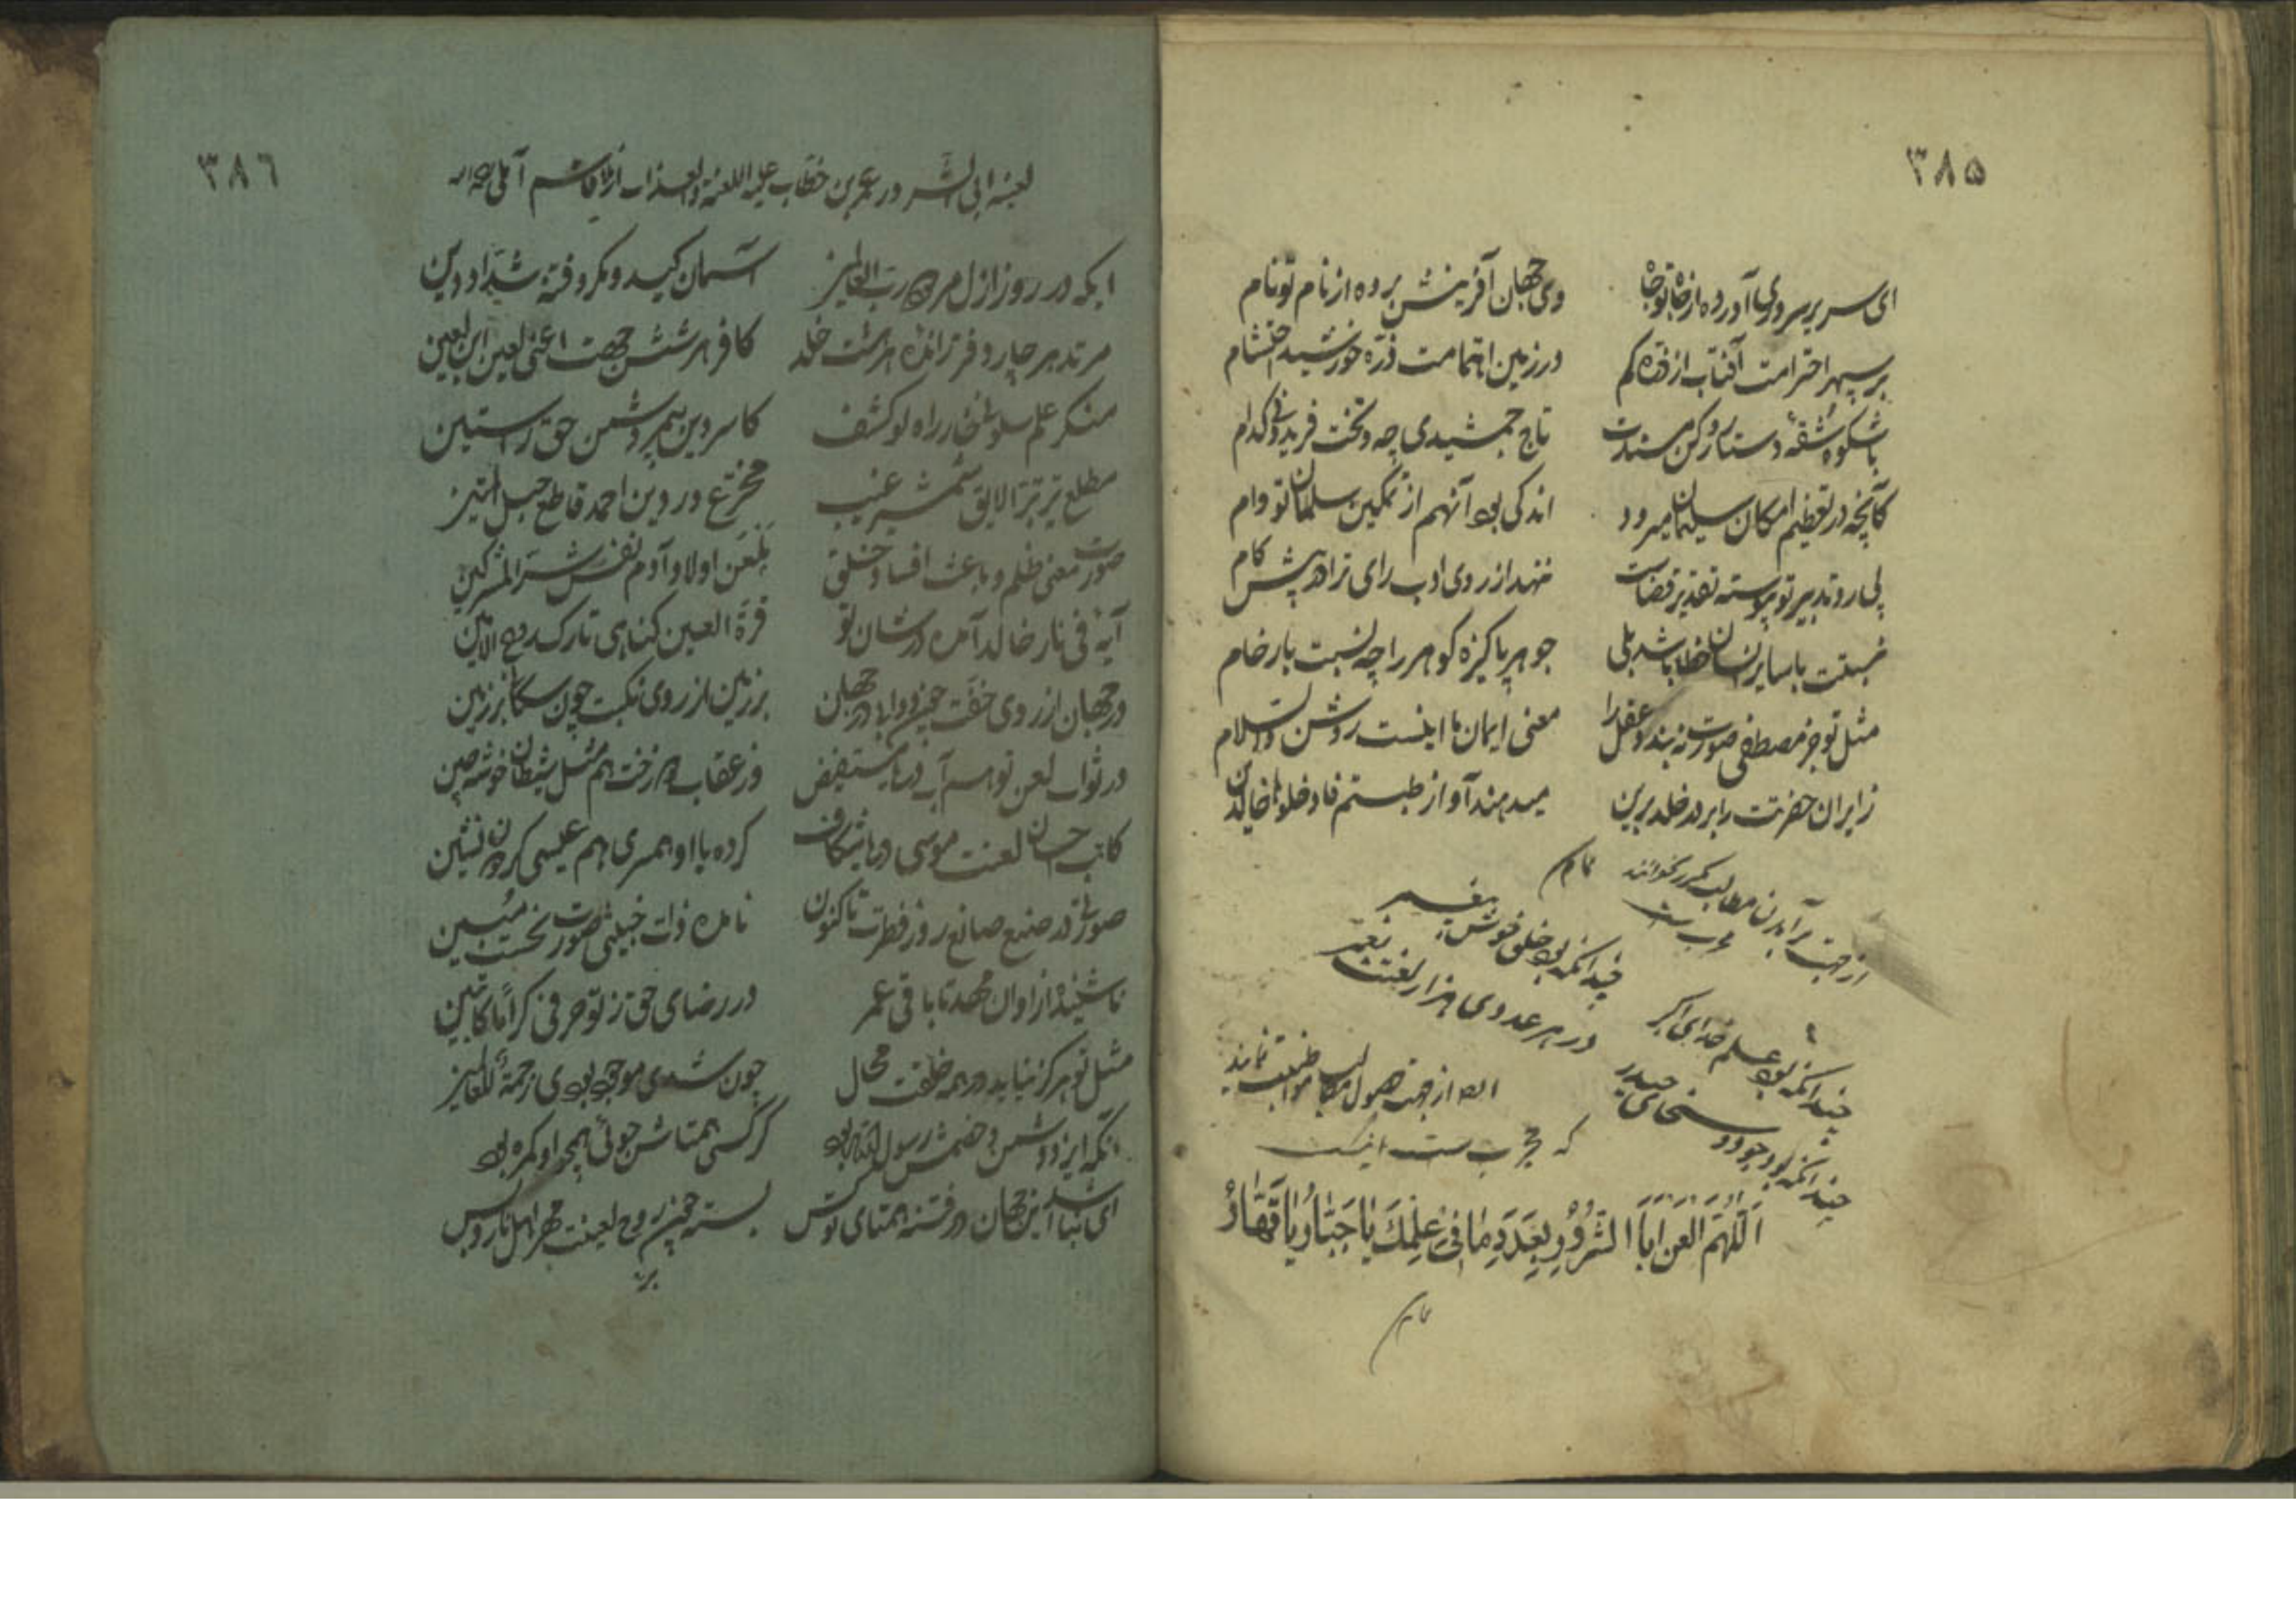 ۳۸۵
ای سریر سروری آورده از جاه تو جاه
وی جهان آفرینش برده از نام تو نام
بر سپهر احترامت آفتاب از ذره کم
در زمین اهتمامت ذره خورشید احتشام
با شکوه شقه دستار و رکن مسندت
تاج جمشیدی چه و تخت فریدونی کدام
کآنچه در تعظیم امکان سلیمان میرود
اندکی بود آنهم از تمکین سلمان تو وام
تدبیر تو پیوسته تقدیر قضاست
ننهد از روی ادب رای ترا در پیش کام
نسبتت با سایر انسان خطا باشد بلی
جوهر پاکیزه گوهر را چه نسبت با رخام
مثل تو جز مصطفی صورت نبندد عقل را
معنی ایمان ما اینست روشن والسلام
زایران حضرتت را بر در خلد برین
میدهند آواز طبتم فادخلوها خالدین
از جهت برآمدن مطالب مکرر بخوانند
مجرب است
چندانکه بود علم خدای اکبر
چندانکه بود خلق خوش پیغمبر
چندانکه بود جود و سخای حیدر
در هر عددی هزار لعنت بعمر
از جهت حصول مطالب مواظبت نمایند
که مجرب است اینست
اَللّهُمَّ العن اَبَا الشُّرُوُرِ بِعَدَدِ مٰا فِی عِلْمِكَ یٰا جَبّٰارُ یٰا قَهّٰارُ
۳۸٦
لعنه ابی الشر در عمر بن خطاب علیه اللعنة والعذاب از ملا قاسم آملی
ایکه در روز ازل رب العالمین
آسمان کید و مکر و فتنه شداد دین
مرتد هر چار دفتر رانده هر هشت خلد
کافر هر شش جهت اعنی لعین ابن لعین
منکر علم سلونی خار راه لو کشف
کاسر دین پیمبر دشمن حق راستین
مطلع تیر تبرا لایق شمشیر غیب
مخترع در دین احمد قاطع حبل المتین
صورت معنی ظلم و باعث افساد خلق
العن اولاد آدم نفس شر المشرکین
آیه فی نار خالد آمده در شان تو
قرة العین کناهی تارک روح الامین
در جهان از روی خفت
بر زمین از روی نکبت چون سکان بر زمین
در ثواب لعن تو هم آب دریا مستفیض
در عقاب هم مثل شیطان خوشه چین
کاتب لعنت موسی دریا شکاف
کرده با او همسری هم عیسی کردون نشین
صورتی در صنع صانع روز فطرت تاکنون
نامده ذات خبیثی صورت نحست مبین
ناشنیده از اوان مهد تا باقی عمر
در رضای حق ز تو حرفی کراما کاتبین
مثل تو هرکز نیاید در همه خلقت محال
چون شدی موجود بودی زحمة للعالمین
آنکه ایزد دشمن و خصمش رسول الله بود
کر کسی همتاش جوئی همچو او کمره بود
ای نباشد این جهان در فتنه همتای تو کس
لعینت بهر اهل نار و بس